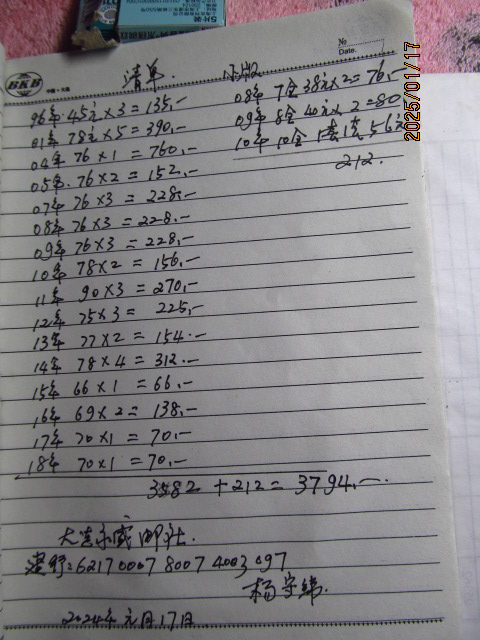 5片装
No
Date.
BKB
清单.
小版
96年 45元×3 = 135.—
01年 78元×5 = 390.—
04年 76×1 = 760.—
05年. 76×2 = 152.—
07年 76×3 = 228.—
08年 76×3 = 228.—
09年 76×3 = 228.—
10年 78×2 = 156.—
11年 90×3 = 270.—
12年 75×3 = 225.—
13年 77×2 = 154.—
14年 78×4 = 312.—
15年 66×1 = 66.—
16年 69×2 = 138.—
17年 70×1 = 70.—
18年 70×1 = 70.—
08年 7全 38元×2 = 76.—
09年 8全 40元×2 = 80
10年 10全 1套1元 56元
212.
3582 + 212 = 3794.—
邮社.
6217 0007 8007 4003 097
杨守纬.
2024年元月17日
2025/01/17